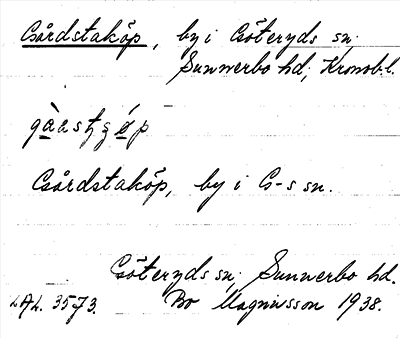 Gårdstaköp, by i Göteryds sn.
Sunnerbo hd, Kronob. l.
Gårdstaköp, by i G-s sn.
Göteryds sn, Sunnerbo hd.
LAL. 3573. Bo Magnusson 1938.